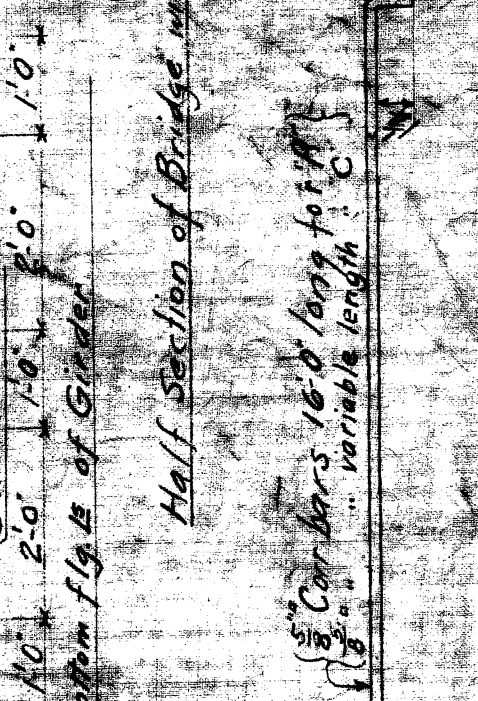 1'-0" 2'-0" 1'-0" 2'-0" 1'-0"
ottom flg. Ls of Girder
Half Section of Bridge
5/8"ø Corr bars 16'-0" long for "A"
5/8" " " variable length " "C"